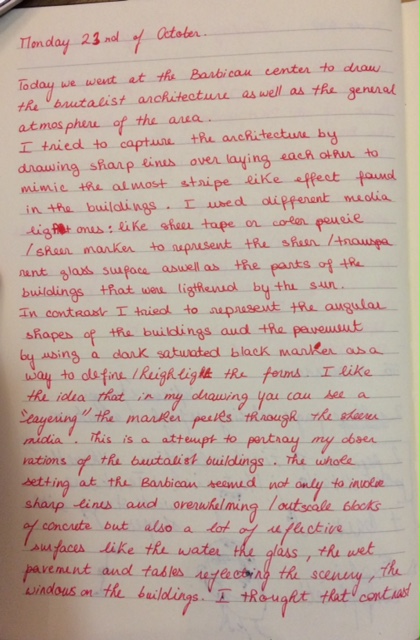 Monday 23nd of October.
Today we went at the Barbican center to draw
the brutalist architecture as well as the general
atmosphere of the area.
I tried to capture the architecture by
drawing sharp lines over laying each other to
mimic the almost stripe like effect found
in the buildings. I used different media
light ones: like sheer tape or color pencil
/sheer marker to represent the sheer/transpa
rent glass surface aswell as the parts of the
buildings that were ligthened by the sun.
In contrast I tried to represent the angular
shapes of the buildings and the pavement
by using a dark saturated black marker as a
way to define/heighlight the forms. I like
the idea that in my drawing you can see a
"layering" the marker peeks through the sheer
media. This is a attempt to portray my obser
vations of the brutalist buildings. The whole
setting at the Barbican seemed not only to involve
sharp lines and overwhelming/outscale blocks
of concrete but also a lot of reflective
surfaces like the water the glass, the wet
pavement and tables reflecting the scenery, the
windows on the buildings. I thought that contrast